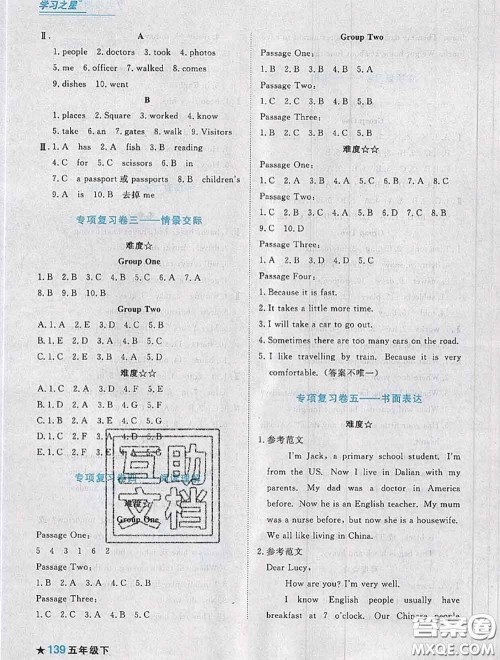 学习之星
Ⅱ. A
1. people 2. doctors 3. took 4. photos
5. me 6. officer 7. walked 8. comes
9. dishes 10. went
B
1. places 2. Square 3. worked 4. know
5. take 6. an 7. gates 8. walk 9. Visitors
Ⅲ. 1. A has 2. A fish 3. B reading
4. C for 5. C scissors 6. C B in
7. C a passport 或 passports 8. B children's
9. A is 10. B 去掉 me
专项复习卷三——情景交际
难度☆
Group One
1. B 2. B 3. B 4. B 5. C 6. A 7. A
8. B 9. B 10. B
Group Two
A. 1. E 2. D 3. C 4. A 5. B
B. 1. E 2. D 3. C 4. A 5. B
难度☆☆
A. 1. E 2. D 3. A 4. C 5. B
B. 1. D 2. E 3. C 4. A 5. B
C. 1. E 2. D 3. A 4. C 5. B
专项复习卷四
难度☆
Group One
Passage One:
5 4 3 1 6 2
Passage Two:
1. B 2. A 3. C 4. B 5. C
Passage Three:
1. C 2. A 3. A 4. B 5. C
★ 139 五年级下
Group Two
Passage One:
1. B 2. B 3. B 4. B 5. A
Passage Two:
1. B 2. A 3. B 4. B 5. B
Passage Three:
1. A 2. B 3. A 4. B 5. B
难度☆☆
Passage One:
1. C 2. A 3. C 4. B 5. C
Passage Two:
1. B 2. A 3. B 4. A 5. A
Passage Three:
1. B 2. A 3. C 4. A 5. D 6. A 7. C 8. B
9. C 10. D
Passage Four:
1. Because it is fast.
2. It takes a little more time.
3. I will take a car to go out.
4. Sometimes there are too many cars on the road.
5. I like travelling by train. Because it is very
comfortable. (答案不唯一)
专项复习卷五——书面表达
难度☆
1. 参考范文
I'm Jack, a primary school student. I'm
from the US. Now I live in Dalian with my
parents. My dad was a doctor in America
before. Now he is an English teacher. My mum
was a nurse before, but now she is a housewife.
We all like living in China.
2. 参考范文
Dear Lucy,
How are you? I'm very fine.
I know English people usually have
breakfast at 7 o'clock. Our Chinese people
互助文档
MXQE.COM